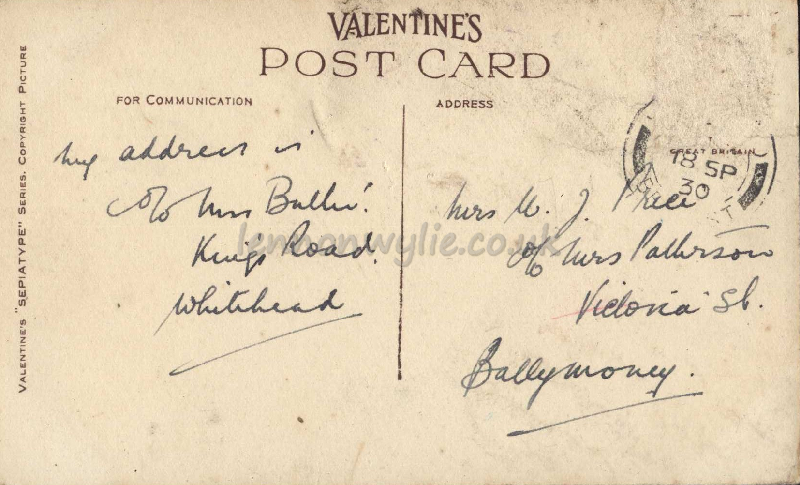 VALENTINE'S
POST CARD
FOR COMMUNICATION
ADDRESS
VALENTINE'S "SEPIATYPE" SERIES. COPYRIGHT PICTURE
GREAT BRITAIN
18 SP
30
My address is
c/o Mrs
Kings Road.
Whitehead
Mrs W. J. Price
c/o Mrs Patterson
Victoria St.
Ballymoney.
lennonwylie.co.uk